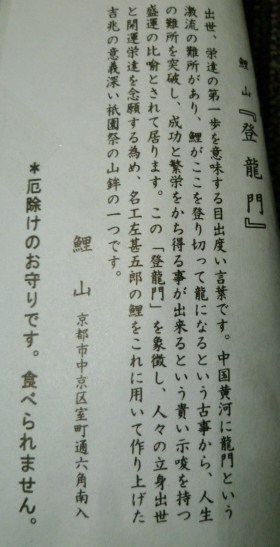 鯉山『登龍門』
出世、栄達の第一歩を意味する目出度い言葉です。中国黄河に龍門という
激流の難所があり、鯉がここを登り切って龍になるという古事から、人生
の難所を突破し、成功と繁栄をかち得る事が出来るという貴い示唆を持つ
盛運の比喩とされて居ります。この「登龍門」を象徴し、人々の立身出世
と開運栄達を念願する為め、名工左甚五郎の鯉をこれに用いて作り上げた
吉兆の意義深い祇園祭の山鉾の一つです。
鯉山 京都市中京区室町通六角南入
＊厄除けのお守りです。食べられません。